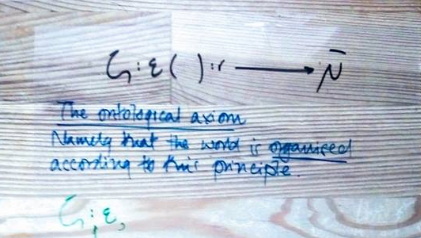 G : ε ( ) : r ⟶ N̄
The ontological axiom
Namely that the world is organised
according to this principle.
G : ε,